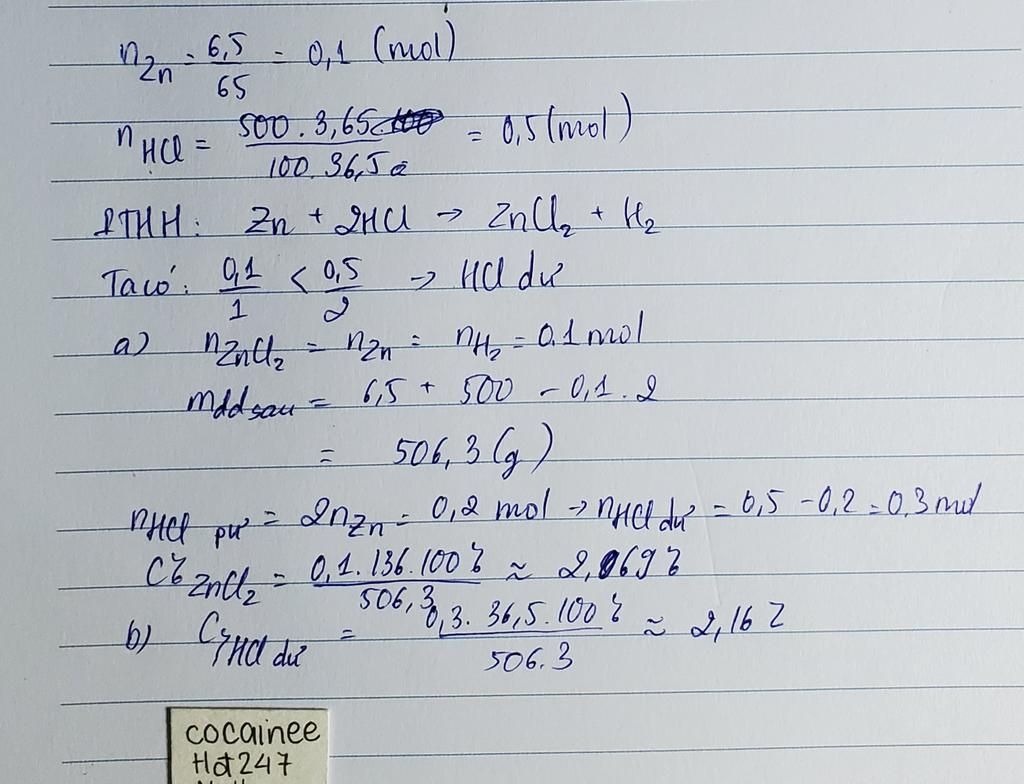 nZn = 6,5/65 = 0,1 (mol)
nHCl = 500 . 3,65/100. 36,5 = 0,5 (mol)
PTHH: Zn + 2HCl → ZnCl₂ + H₂
Ta có: 0,1/1 < 0,5/2 → HCl dư
a) nZnCl₂ = nZn = nH₂ = 0.1 mol
mdd sau = 6,5 + 500 - 0,1 . 2
= 506,3 (g)
nHCl pư = 2nZn = 0,2 mol → nHCl dư = 0,5 - 0,2 = 0,3 mol
C% ZnCl₂ = 0,1. 136. 100%/506,3 ≈ 2,69%
b) C% HCl dư = 0,3. 36,5. 100%/506.3 ≈ 2,16%
cocainee
Hot247